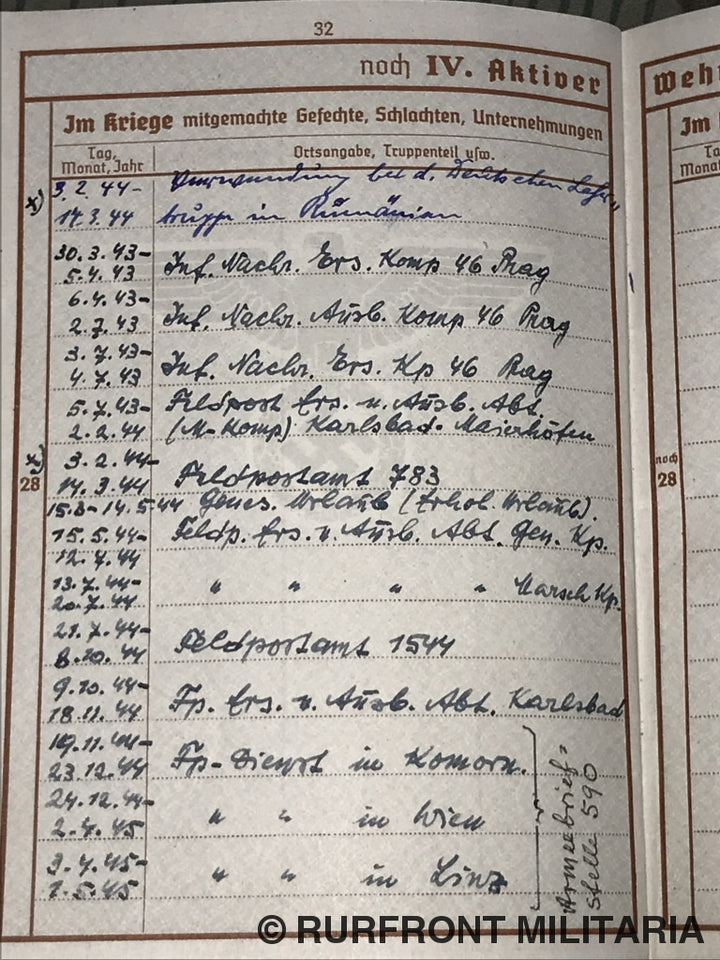 32
noch IV. Aktiver
Im Kriege mitgemachte Gefechte, Schlachten, Unternehmungen
Tag, Monat, Jahr
Ortsangabe, Truppenteil usw.
x) 3.2.44- Verwendung bei d. Deutschen Lehr-
14.3.44 truppe in Rumänien
30.3.43- 5.4.43 Inf. Nachr. Ers. Komp 46 Prag
6.4.43- 2.7.43 Inf. Nachr. Ausb. Komp 46 Prag
3.7.43- 4.7.43 Inf. Nachr. Ers. Kp 46 Prag
5.7.43- Feldpost Ers. u. Ausb. Abt.
2.2.44 (M-Komp) Karlsbad-Maierhöfen
x) 3.2.44- 14.3.44 Feldpostamt 783
28
15.3-14.5.44 Genes. Urlaub (Erhol. Urlaub).
15.5.44- 12.7.44 Feldp. Ers. u. Ausb. Abt. Gen. Kp.
13.7.44- 20.7.44 " " " " Marsch Kp.
21.7.44- 8.10.44 Feldpostamt 1544
9.10.44- 18.11.44 Fp. Ers. u. Ausb. Abt. Karlsbad
19.11.44- 23.12.44 Fp-Dienst in Komorn.
24.12.44- 2.4.45 " " in Wien
3.4.45- 1.5.45 " " in Linz
Armeebrief=
stelle 590
Weh
Im
Ta
Monat
noch
28
© RURFRONT MILITARIA